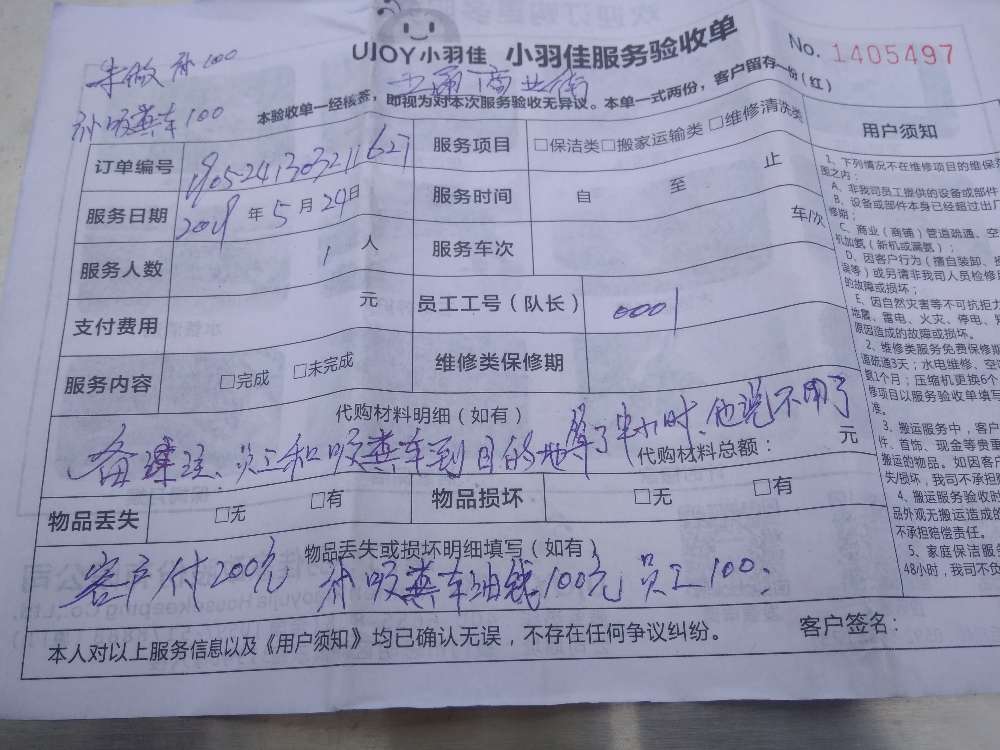 欢迎订购更多服
UJOY小羽佳 小羽佳服务验收单
No. 1405497
朱做 补100
补吸粪车100
商业街
本验收单一经核签，即视为对本次服务验收无异议。本单一式两份，客户留存一份（红）
订单编号
服务项目 □保洁类□搬家运输类 □维修清洗类
服务日期 2019 年 5 月 24 日
服务时间 自 至 止
服务人数 1 人
服务车次 车/次
支付费用 元
员工工号（队长） 0001
服务内容 □完成 □未完成
维修类保修期
代购材料明细（如有）
备注：员工和吸粪车到目的地等了半小时、他说不用了
代购材料总额： 元
物品丢失 □无 □有
物品损坏 □无 □有
物品丢失或损坏明细填写（如有）
客户付200元 补吸粪车油钱100元 员工100.
本人对以上服务信息以及《用户须知》均已确认无误，不存在任何争议纠纷。
客户签名：
用户须知
1、下列情况不在维修项目的维保范
围之内：
A、非我司员工提供的设备或部件
B、设备或部件本身已经超过出厂
修期；
C、商业（商铺）管道疏通、空
机加氨（新机或漏氨）；
D、因客户行为（擅自装卸、
误等）或另请非我司人员检修
的故障或损坏；
E、因自然灾害等不可抗拒力
地震、雷电、火灾、停电、
原因造成的故障或损坏。
2、维修类服务免费保修期
道疏通3天；水电维修、空
氨1个月；压缩机更换6个
修项目以服务验收单填写
准。
3、搬运服务中，客户
件、首饰、现金等贵重
搬运的物品。如因客户
失/损坏，我司不承担
4、搬运服务验收时
品外观无搬运造成的
不承担赔偿责任。
5、家庭保洁服务
48小时，我司不负